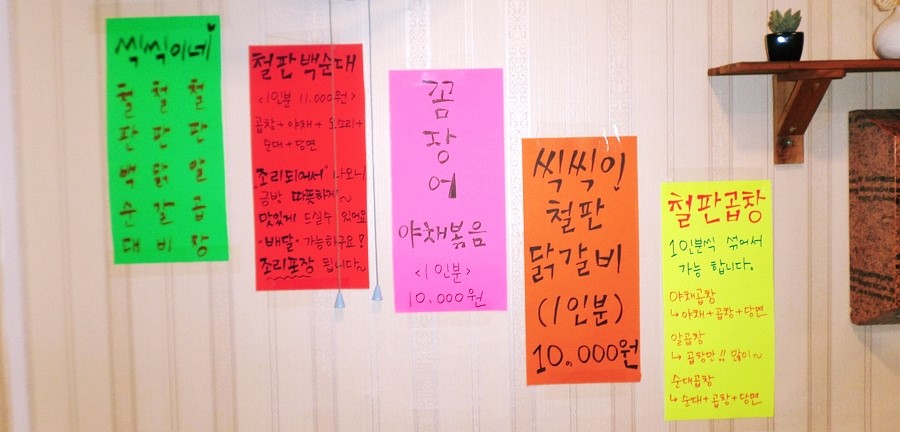 씩씩이네
철판백순대
철판닭갈비
철판알곱창
철판백순대
<1인분 11,000원>
곱창+야채+오소리+
순대+당면
조리되어서 나오니
금방 따뜻하게~
맛있게 드실수 있어요
배달 가능하구요?
조리포장 됩니다~
꼼장어
야채볶음
<1인분>
10,000원
씩씩이
철판
닭갈비
(1인분)
10,000원
철판곱창
1인분씩 섞어서
가능 합니다.
야채곱창
↳야채+곱창+당면
알곱창
↳곱창만!! 많이~
순대곱창
↳순대+곱창+당면